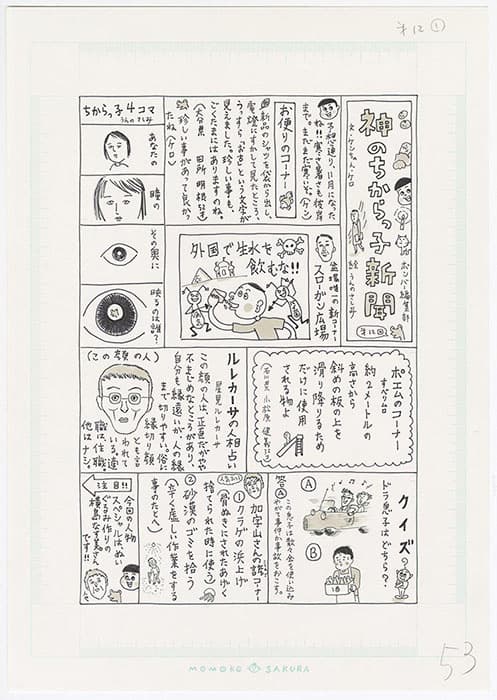 才12①
神のちからっ子新聞
文・ケンちゃん・ケロ
編集部
絵 うんのさしみ
第12回
お便りのコーナー
予想通り、11月になった
ね!!寒さ暑さも彼岸
まで。まだまだ寒いぞ。(ケン)
新品のシャツを袋から出し、
電燈にすかして見たところ、
うっすら「お吉」という文字が
見えました。珍しい事も
ごくたまにはありますのね。
(大分県 田所明枝
珍しい事があって良かっ
たね(ケロ)
ちからっ子4コマ
うんのさしみ
あなたの
瞳の
その奥に
映るのは誰?
スローガン広場
外国で生水を
飲むな!!
ポエムのコーナー
すべり台
約2メートルの
高さから
斜めの板の上を
滑り降りるため
だけに使用
される物よ
(石川県 小松原
ルレカーサの人相占い
星見ルレカーサ
(この顔の人)
この顔の人は、正直だがやや
不まじめなところがあり、
自分も縁遠いが、人の縁
まで切りやすい。俗に
縁切り顔
とも言
われて
いる。適
職は住職。
他はナシ。
クイズ
ドラ息子はどちら?
A
B
答 A
この息子は数々金を使い込み
やがて事件か事故をおこす。
加宇山さんの諺コーナー
①クラゲの浜上げ
(骨ぬきにされたあげく
捨てられた時に使う)
②砂漠のゴミを拾う
(辛く虚しい作業をする
事のたとえ)
注目!!
今回の人物
スペシャルは、ぬい
ぐるみ作りの
横島なす美さん
です!!
MOMOKO SAKURA
53